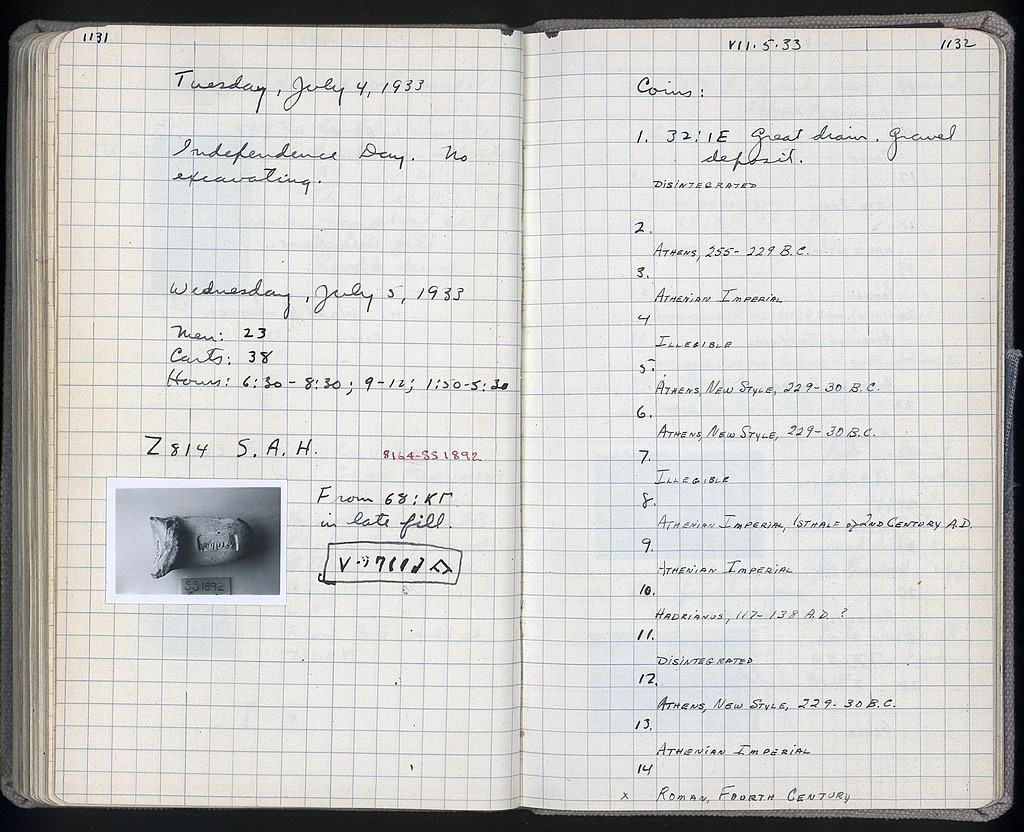 1131
Tuesday, July 4, 1933
Independence Day. No
excavating.
Wednesday, July 5, 1933
Men: 23
Carts: 38
Hours: 6:30-8:30; 9-12; 1:30-5:30
Z 814 S.A.H.
8164-SS1892
From 68:ΚΓ
in late fill.
SS1892
VII.5.33
1132
Coins:
1. 32:IE Great drain. Gravel
deposit.
DISINTEGRATED
2.
ATHENS, 255-229 B.C.
3.
ATHENIAN IMPERIAL
4
ILLEGIBLE
5.
ATHENS, NEW STYLE, 229-30 B.C.
6.
ATHENS, NEW STYLE, 229-30 B.C.
7.
ILLEGIBLE
8.
ATHENIAN IMPERIAL, 1ST HALF of 2ND CENTURY A.D.
9.
ATHENIAN IMPERIAL
10.
HADRIANUS, 117-138 A.D. ?
11.
DISINTEGRATED
12.
ATHENS, NEW STYLE, 229-30 B.C.
13.
ATHENIAN IMPERIAL
14
x ROMAN, FOURTH CENTURY